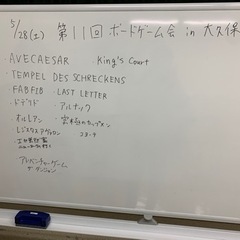 5/28(土) 第11回 ボードゲーム会 in 大久保
・AVE CAESAR ・King's Court
・TEMPEL DES SCHRECKENS
・FAB FIB ・LAST LETTER
・ドデリド ・アルナック
・オルレアン ・究極のカップメン
レジスタンス アヴァロン
アドベンチャーゲーム
ザ・ダンジョン